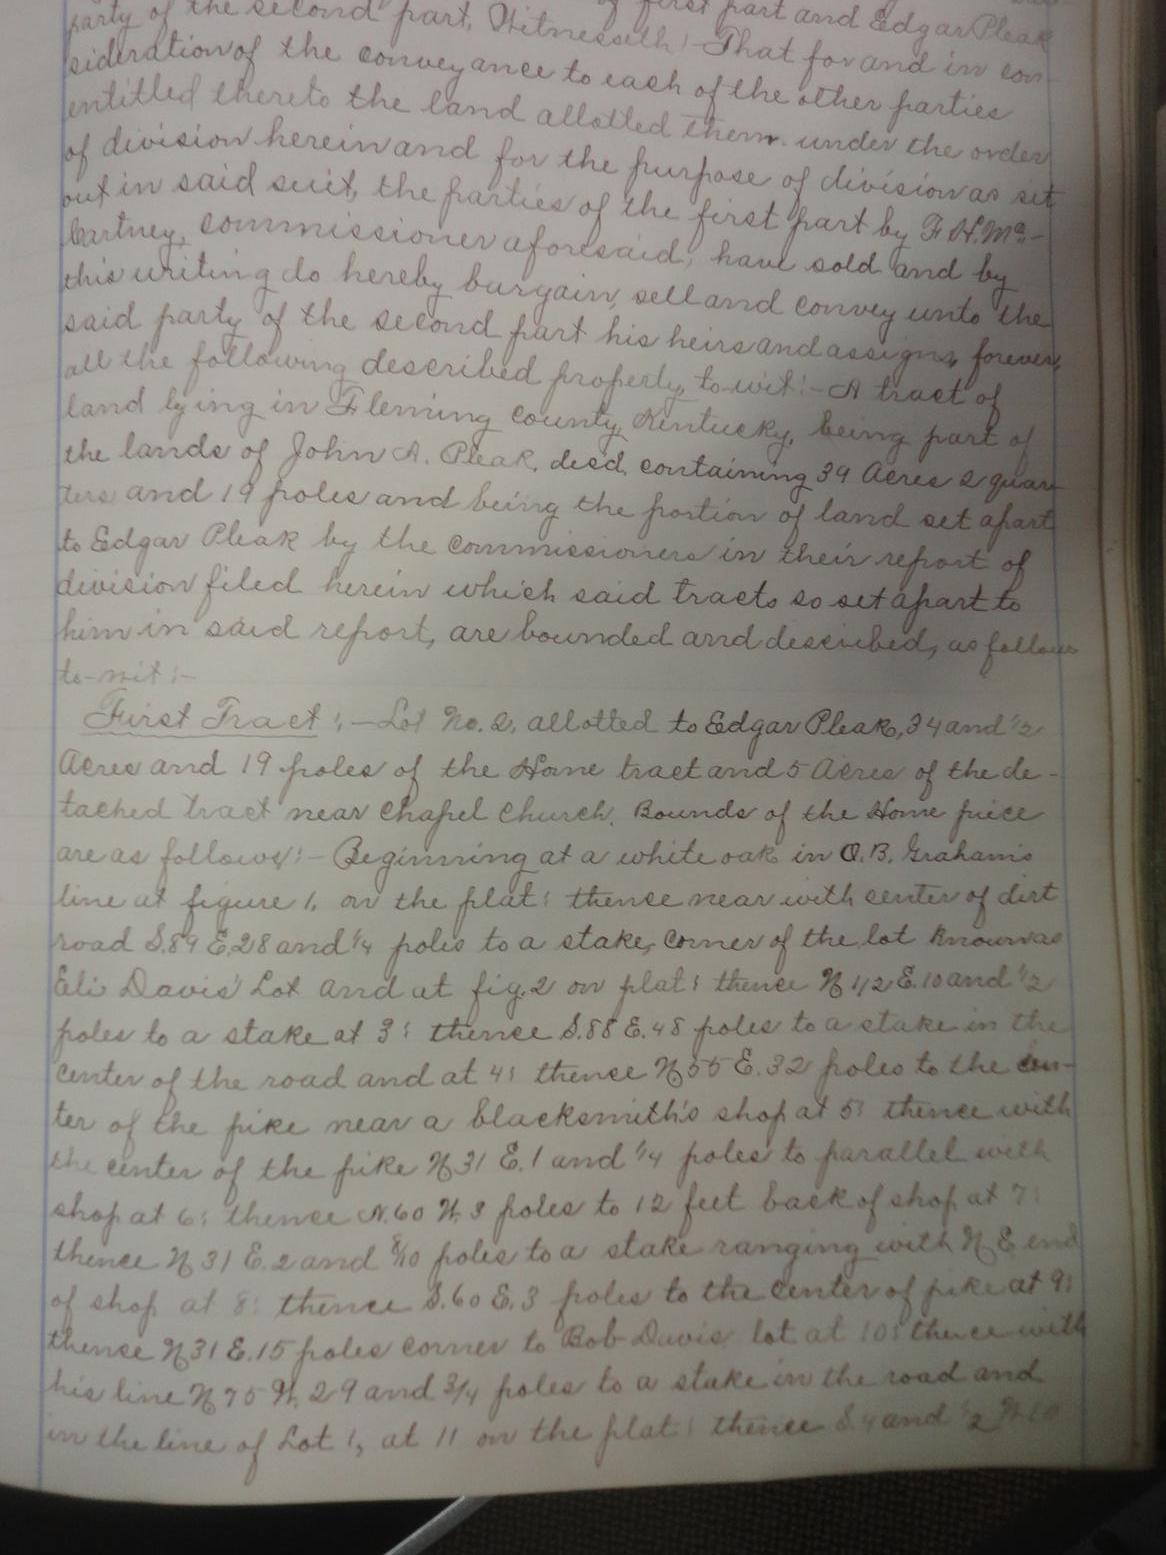 party of the second part, Witnesseth:- That for and in con-
sideration of the conveyance to each of the other parties
entitled thereto the land allotted them under the order
of division herein and for the purpose of division as set
out in said suit, the parties of the first part by F. H. Mc-
Cartney, commissioner aforesaid, have sold and by
this writing do hereby bargain, sell and convey unto the
said party of the second part his heirs and assigns, forever,
all the following described property, to-wit:- A tract of
land lying in Fleming County, Kentucky, being part of
the lands of John A. Pleak, decd, containing 39 Acres 2 quar-
ters and 19 poles and being the portion of land set apart
to Edgar Pleak by the commissioners in their report of
division filed herein which said tracts so set apart to
him in said report, are bounded and described, as follows
to-wit:-
First Tract:- Lot No. 2, allotted to Edgar Pleak, 34 and 1/2
Acres and 19 poles of the Home tract and 5 Acres of the de-
tached tract near Chapel Church. Bounds of the Home piece
are as follows:- Beginning at a white oak in O. B. Graham's
line at figure 1, on the plat; thence near with center of dirt
road S. 89 E. 28 and 1/4 poles to a stake, corner of the lot known as
Eli Davis' Lot and at fig. 2 on plat; thence N 1/2 E. 10 and 1/2
poles to a stake at 3; thence S. 88 E. 48 poles to a stake in the
center of the road and at 4; thence N 55 E. 32 poles to the cen-
ter of the pike near a blacksmith's shop at 5; thence with
the center of the pike N 31 E. 1 and 1/4 poles to parallel with
shop at 6; thence N. 60 W. 3 poles to 12 feet back of shop at 7;
thence N 31 E. 2 and 8/10 poles to a stake ranging with N E end
of shop at 8; thence S. 60 E. 3 poles to the center of pike at 9;
thence N 31 E. 15 poles corner to Bob Davis lot at 10; thence with
his line N 75 W. 29 and 3/4 poles to a stake in the road and
in the line of Lot 1, at 11 on the plat; thence S. 4 and 1/2 W. 60